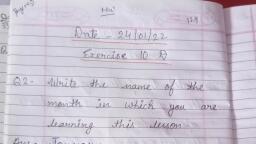 Date - 24/01/22
Exercise 10 D
Q2- Write the name of the
month in which you are
learning this lesson